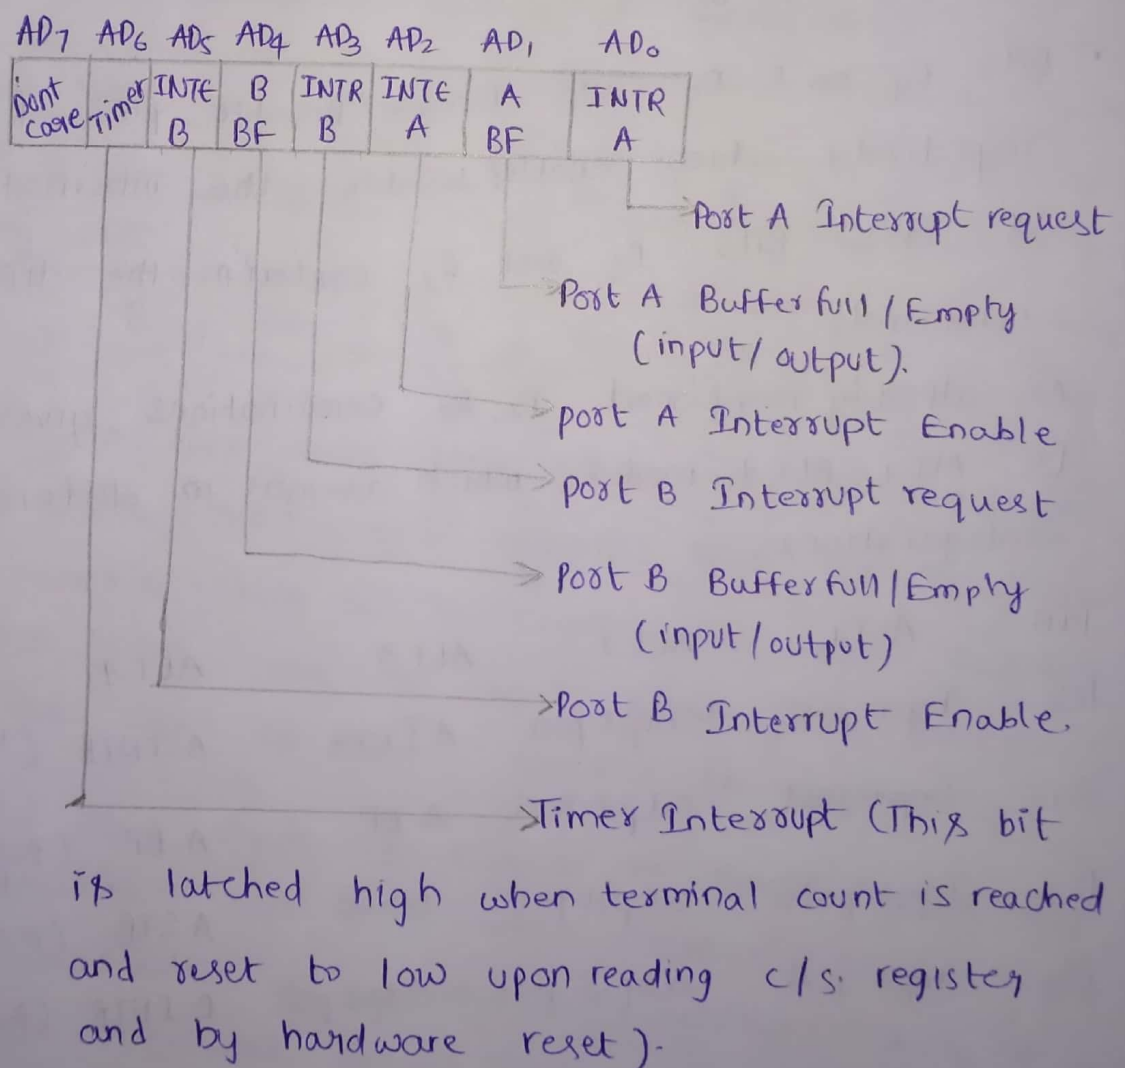 AD7 AD6 AD5 AD4 AD3 AD2 AD1 AD0
Dont Care Timer INTE B B BF INTR B INTE A A BF INTR A
Port A Interrupt request
Port A Buffer full / Empty
(input / output).
port A Interrupt Enable
port B Interrupt request
Port B Buffer full / Empty
(input / output)
Port B Interrupt Enable.
Timer Interrupt (This bit
is latched high when terminal count is reached
and reset to low upon reading c/s. register
and by hardware reset).